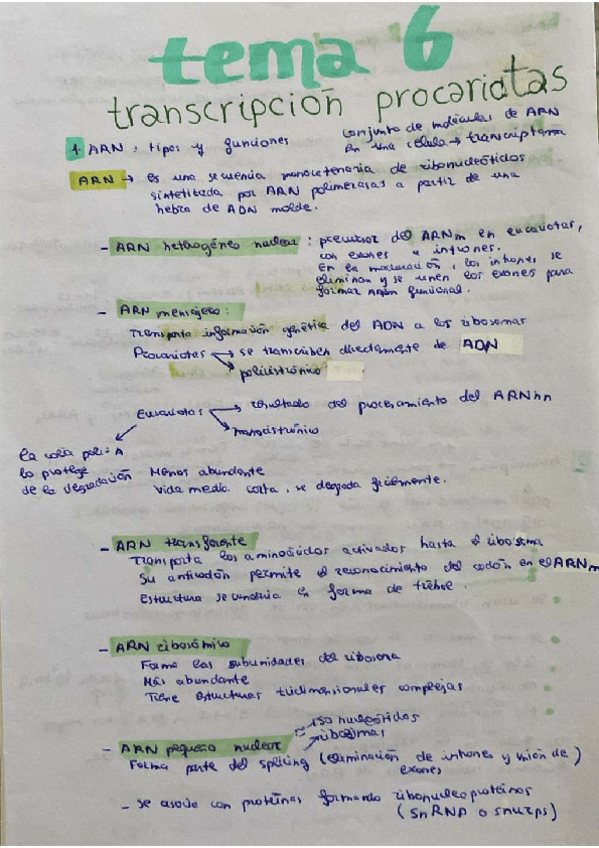 tema 6
transcripción procariotas
1. ARN: tipos y funciones
conjunto de moléculas de ARN
en una célula → transcriptoma
ARN → es una secuencia monocatenaria de ribonucleótidos
sintetizada por ARN polimerasas a partir de una
hebra de ADN molde.
- ARN heterogéneo nuclear: precursor del ARNm en eucariotas,
con exones e intrones.
En la maduración, los intrones se
eliminan y se unen los exones para
formar ARNm funcional.
- ARN mensajero:
Transporta información genética del ADN a los ribosomas
Procariotas → se transcriben directamente de ADN
→ policistrónico
Eucariotas → resultado del procesamiento del ARNhn
→ monocistrónico
la cola poli-A
lo protege
de la degradación
Menos abundante
Vida media corta, se degrada fácilmente.
- ARN transferente
Transporta los aminoácidos activados hasta el ribosoma
Su anticodón permite el reconocimiento del codón en el ARNm
Estructura secundaria en forma de trébol.
- ARN ribosómico
Forma las subunidades del ribosoma
Más abundante
Tiene estructuras tridimensionales complejas
- ARN pequeño nuclear
≈ 150 nucleótidos
Forma parte del splicing (eliminación de intrones y unión de
exones)
- Se asocia con proteínas formando ribonucleoproteínas
(snRNP o snurps)